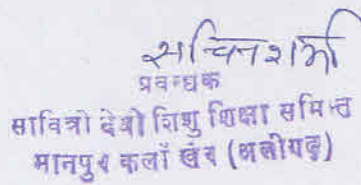 सचिन शर्मा
प्रबन्धक
सावित्री देवी शिशु शिक्षा समिति
मानपुर कलाँ खैर (अलीगढ़)